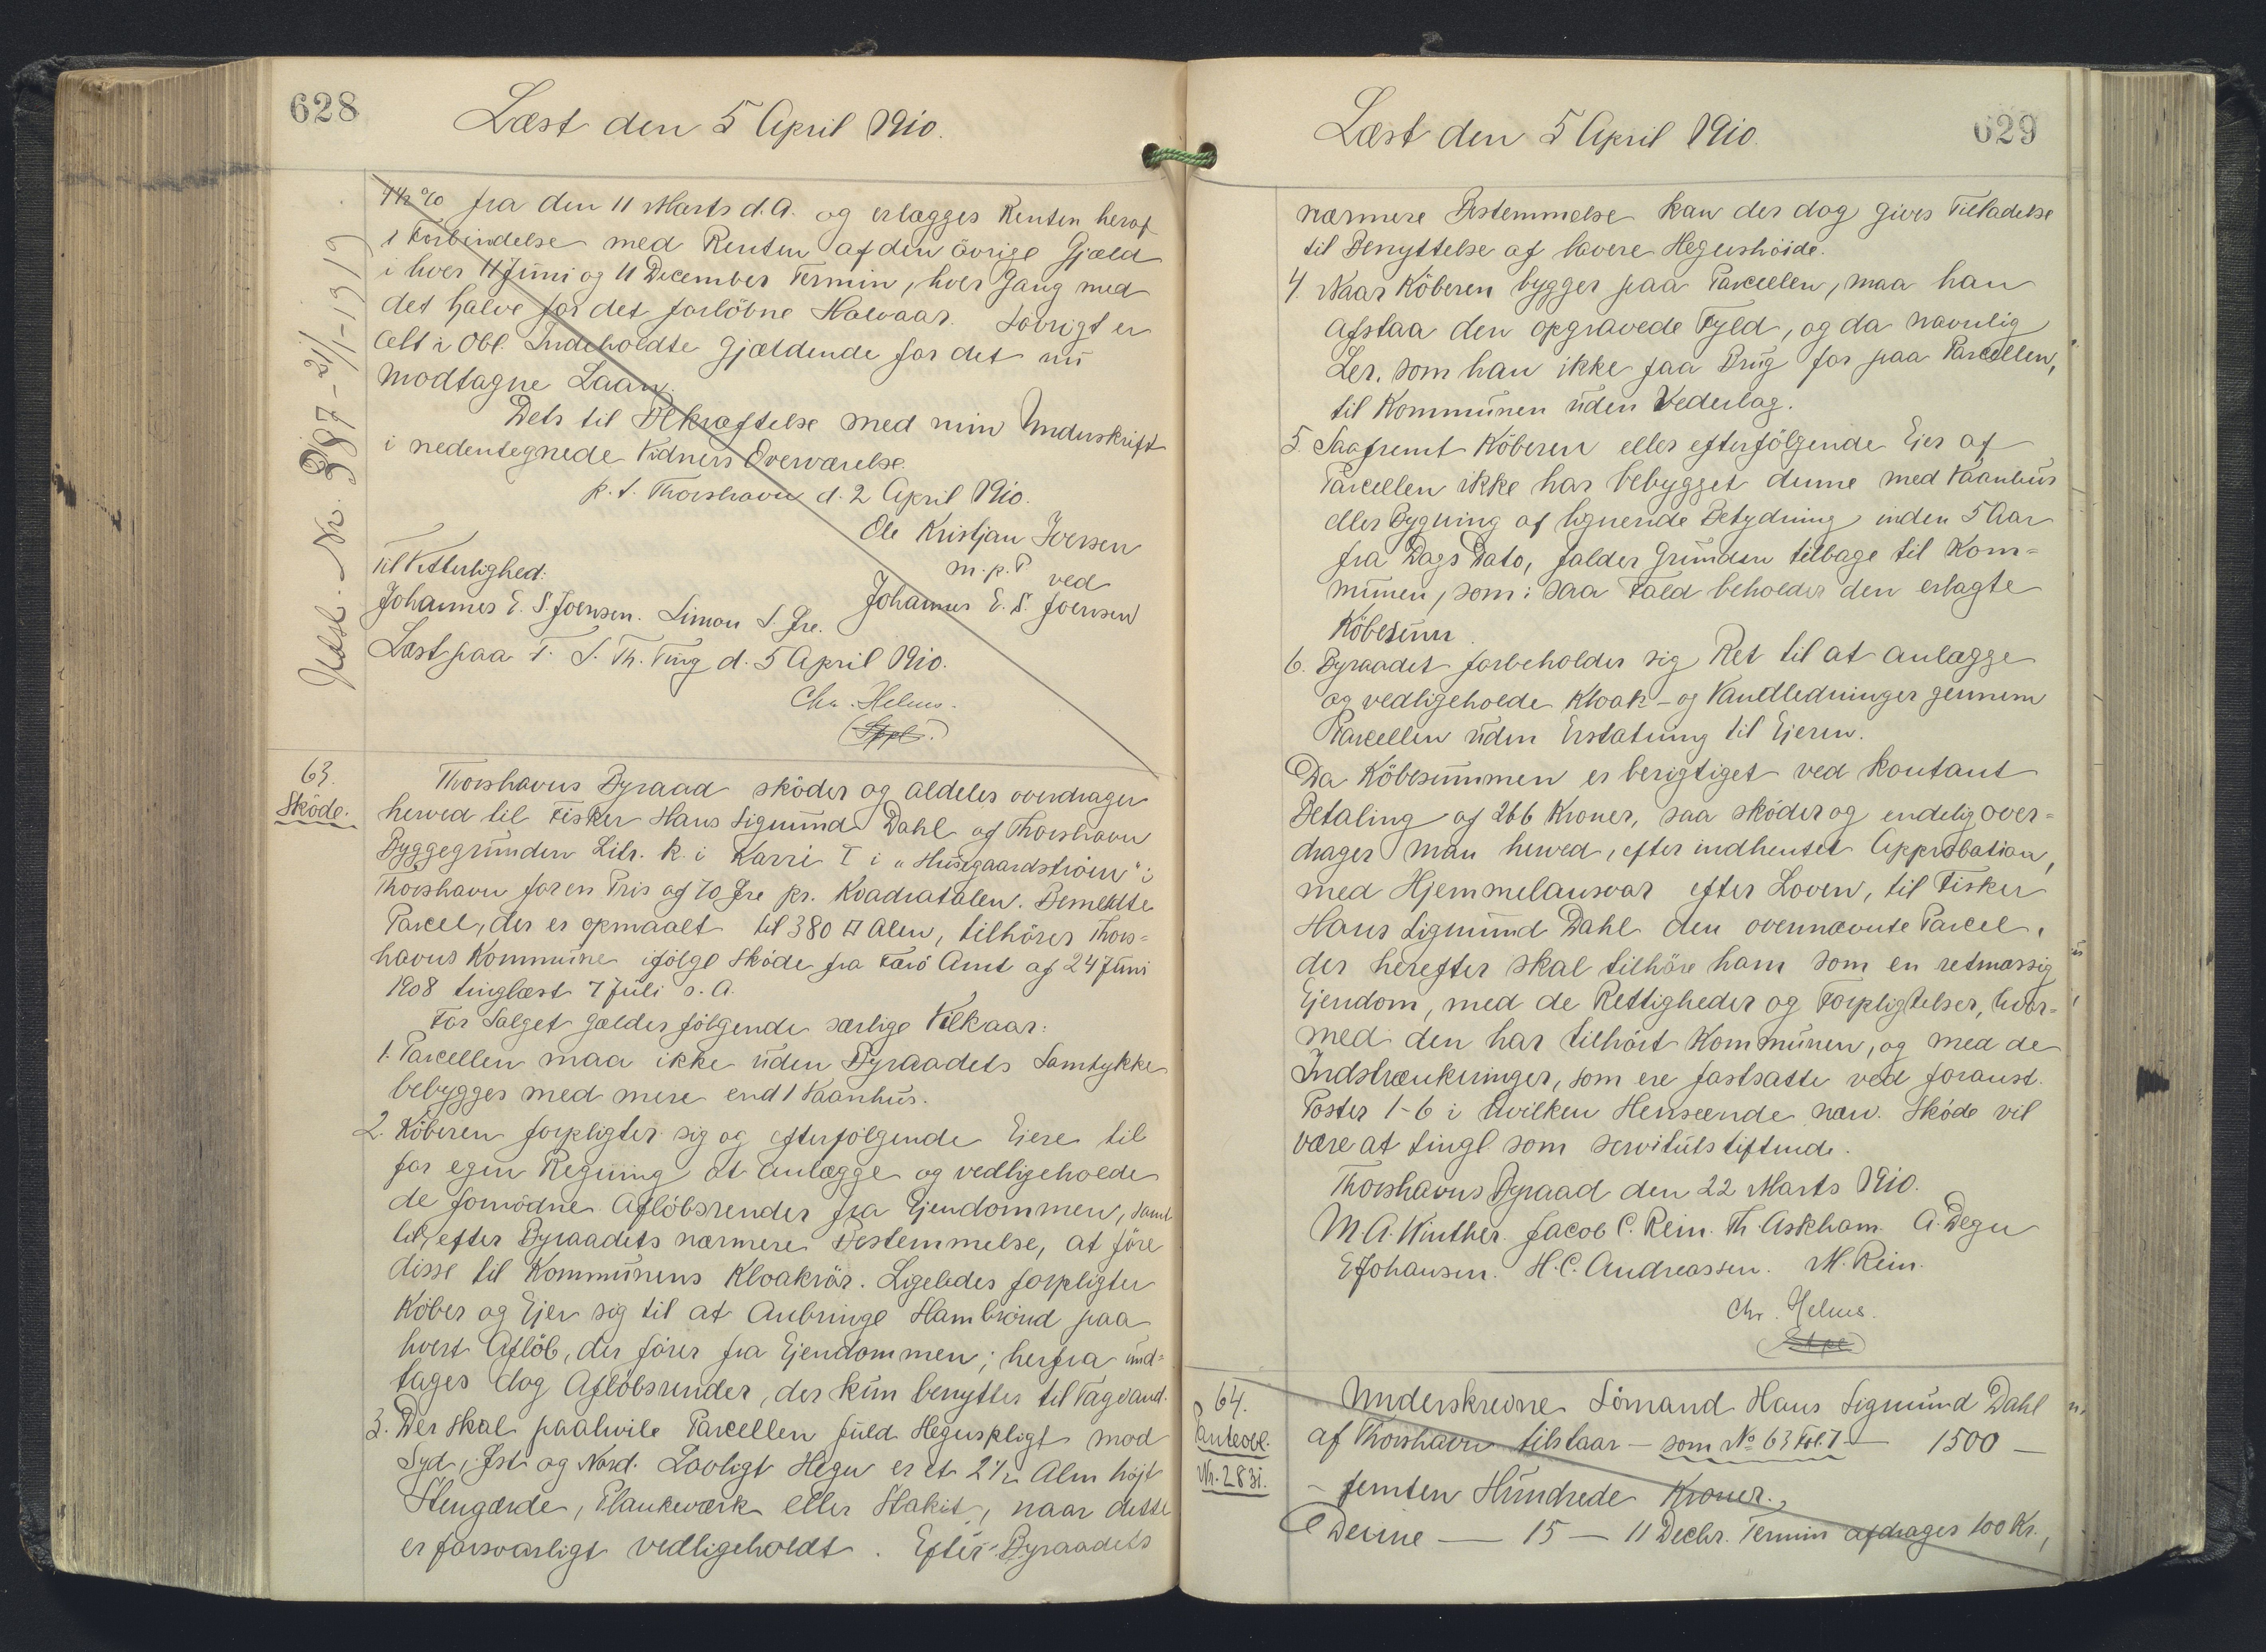 628
Læst den 5 April 1910.
4½ % fra den 11 Marts d. A. og erlægges Renten heraf
i Forbindelse med Renten af den övrige Gjæld
i hver 11 Juni og 11 December Termin, hver Gang med
det halve for det forlöbne Halvaar. Iövrigt er
alt i Obl. Indeholdte Gjældende for det nu
modtagne Laan.
Dets til Bekræftelse med min Underskrift
i nedentegnede Vidners Overværelse.
p. t. Thorshavn d. 2 April 1910.
Ole Kristjan Joensen
m. p. P ved
Johannes E. S. Joensen
Til Vitterlighed:
Johannes E. S. Joensen. Simon S. Jre.
Læst paa T. S. Th. Ting d. 5 April 1910.
Chr. Helms.
Nr. 387 - 21/1-1919
63.
Sköde.
Thorshavns Byraad sköder og aldeles overdrager
herved til Fisker Hans Sigmund Dahl af Thorshavn
Byggegrunden Litr. k. i Karré I i „Husegaardströen" i
Thorshavn for en Pris af 70 Øre pr. Kvadratalen. Bemeldte
Parcel, der er opmaalt til 380 □ Alen, tilhörer Thors=
havns Kommune ifölge Sköde fra Færö Amt af 24 Juni
1908 tinglæst 7 Juli s. A.
For Salget gælder fölgende særlige Vilkaar:
1. Parcellen maa ikke uden Byraadets Samtykke
bebygges med mere end 1 Vaanhus.
2. Köberen forpligter sig og efterfölgende Ejere til
for egen Regning at anlægge og vedligeholde
de fornödne Aflöbsrender fra Ejendommen, samt
til, efter Byraadets nærmere Bestemmelse, at före
disse til Kommunens Kloakrör. Ligeledes forpligter
Köber og Ejer sig til at Anbringe Slambrönd paa
hvert Aflöb, der förer fra Ejendommen; herfra und=
tages dog Aflöbsrender, der kun benyttes til Tagvand.
3. Der skal paahvile Parcellen fuld Hegnspligt mod
Syd, Øst og Nord. Lovligt Hegn er et 2½ Alen højt
Stengærde, Plankeværk eller Stakit, naar dette
er forsvarligt vedligeholdt. Efter Byraadets
Læst den 5 April 1910.
629
nærmere Bestemmelse kan der dog gives Tilladelse
til Benyttelse af lavere Hegnshöide.
4. Naar Köberen bygger paa Parcellen, maa han
afstaa den opgravede Fyld, og da navnlig
Ler. som han ikke faa Brug for paa Parcellen,
til Kommunen uden Vederlag.
5. Saafremt Köberen eller efterfölgende Ejer af
Parcellen ikke har bebygget denne med Vaanhus
eller Bygning af lignende Betydning inden 5 Aar
fra Dags Dato, falder Grunden tilbage til Kom=
munen, som i saa Fald beholder den erlagte
Köbesum
6. Byraadet forbeholder sig Ret til at anlægge
og vedligeholde Kloak- og Vandledninger gennem
Parcellen uden Erstatning til Ejeren.
Da Köbesummen er berigtiget ved kontant
Betaling af 266 Kroner, saa sköder og endelig over=
drager man herved, efter indhentet Approbation,
med Hjemmelansvar efter Loven, til Fisker
Hans Sigmund Dahl den ovennævnte Parcel,
der herefter skal tilhöre ham som en retmæssig
Ejendom, med de Rettigheder og Forpligtelser, hvor=
med den har tilhört Kommunen, og med de
Indskrænkninger, som ere fastsatte ved foranst.
Poster 1-6 i hvilken Henseende nærv. Sköde vil
være at tingl. som servitutstiftende.
Thorshavns Byraad den 22 Marts 1910.
M A. Winther. Jacob C. Rein. Th. Askham. A. Degn
E Johansen. H. C. Andreassen. M. Rein.
Chr. Helms.
64.
Panteobl.
Nr. 283i.
Underskrevne Sömand Hans Sigmund Dahl
af Thorshavn tilstaar — som № 63 Fol. 7 — 1500 —
- femten Hundrede Kroner.
Denne — 15 — 11 Decbr. Termin afdrages 100 Kr.,